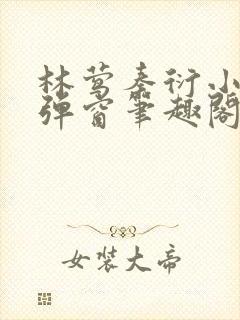 林莺秦衍小
弹窗笔趣阁
女装大帝